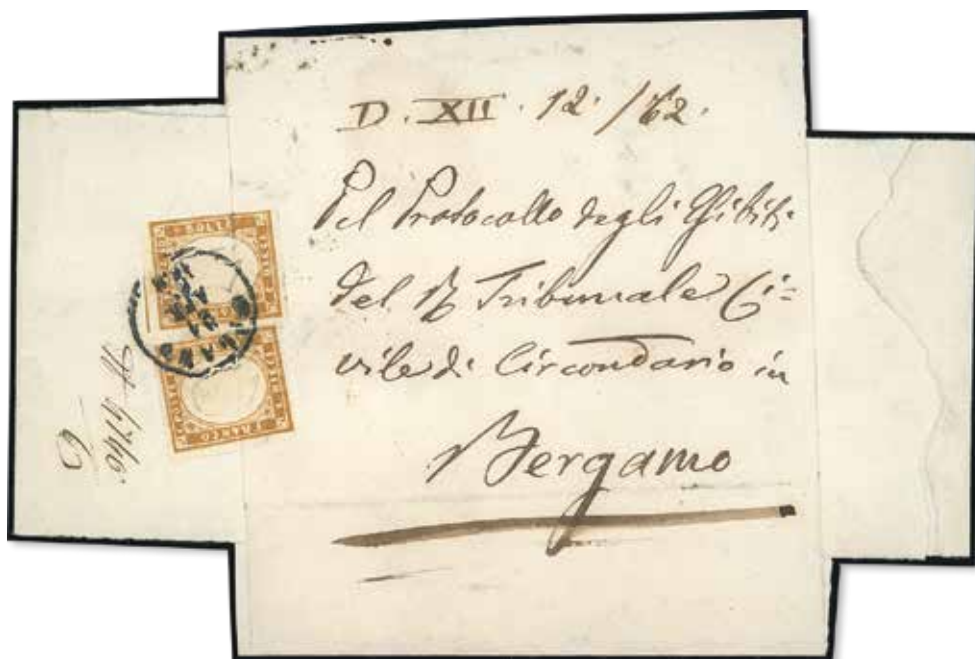 D. XII. 12. /62.
Pel Protocollo degli Esibiti
del R Tribunale Ci=
vile di Circondario in
Bergamo
MILANO
FRANCO
6